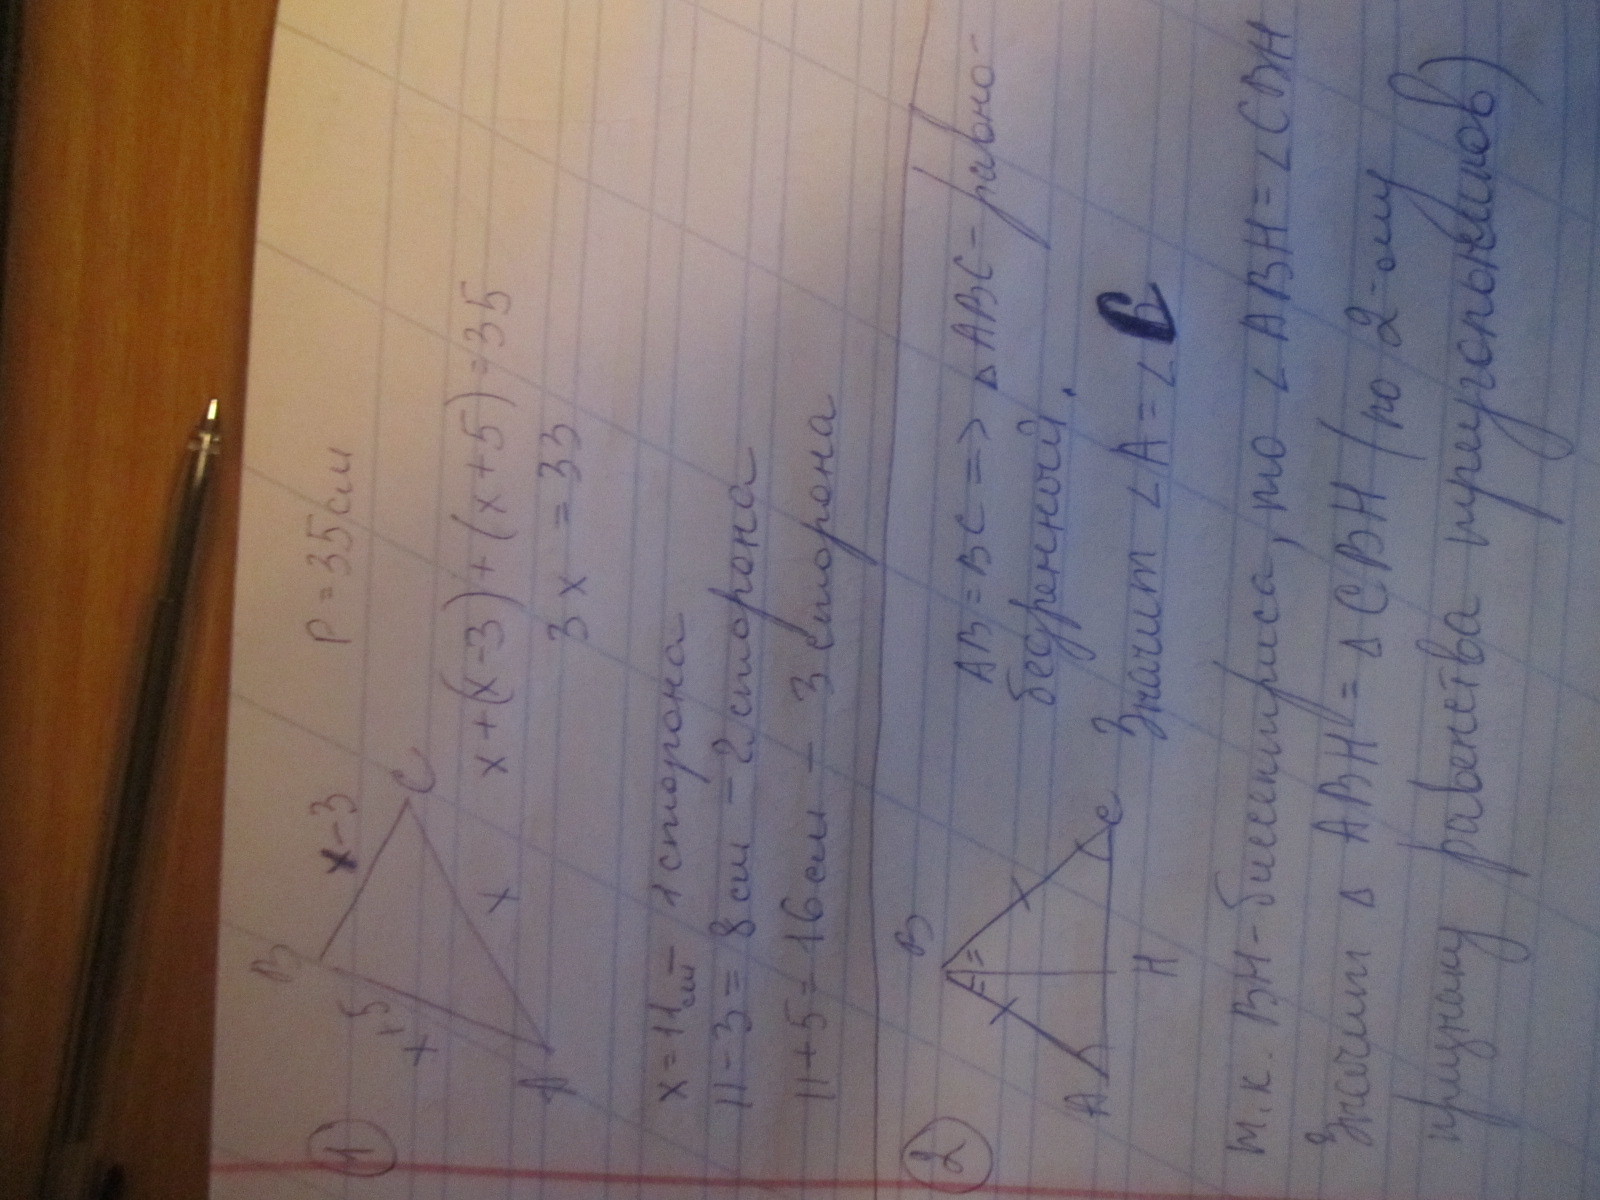 1
P = 35 см
B
x-3
C
x+5
x
A
x+(x-3)+(x+5)=35
3x = 33
x = 11 см - 1 сторона
11-3 = 8 см - 2 сторона
11+5=16 см - 3 сторона
2
B
A
H
C
AB = BC => ΔABC - равно-
бедренный.
Значит ∠A = ∠C
т.к. BH - биссектриса, то ∠ABH = ∠CBH
Значит Δ ABH = Δ CBH (по 2-ому
признаку равенства треугольников)